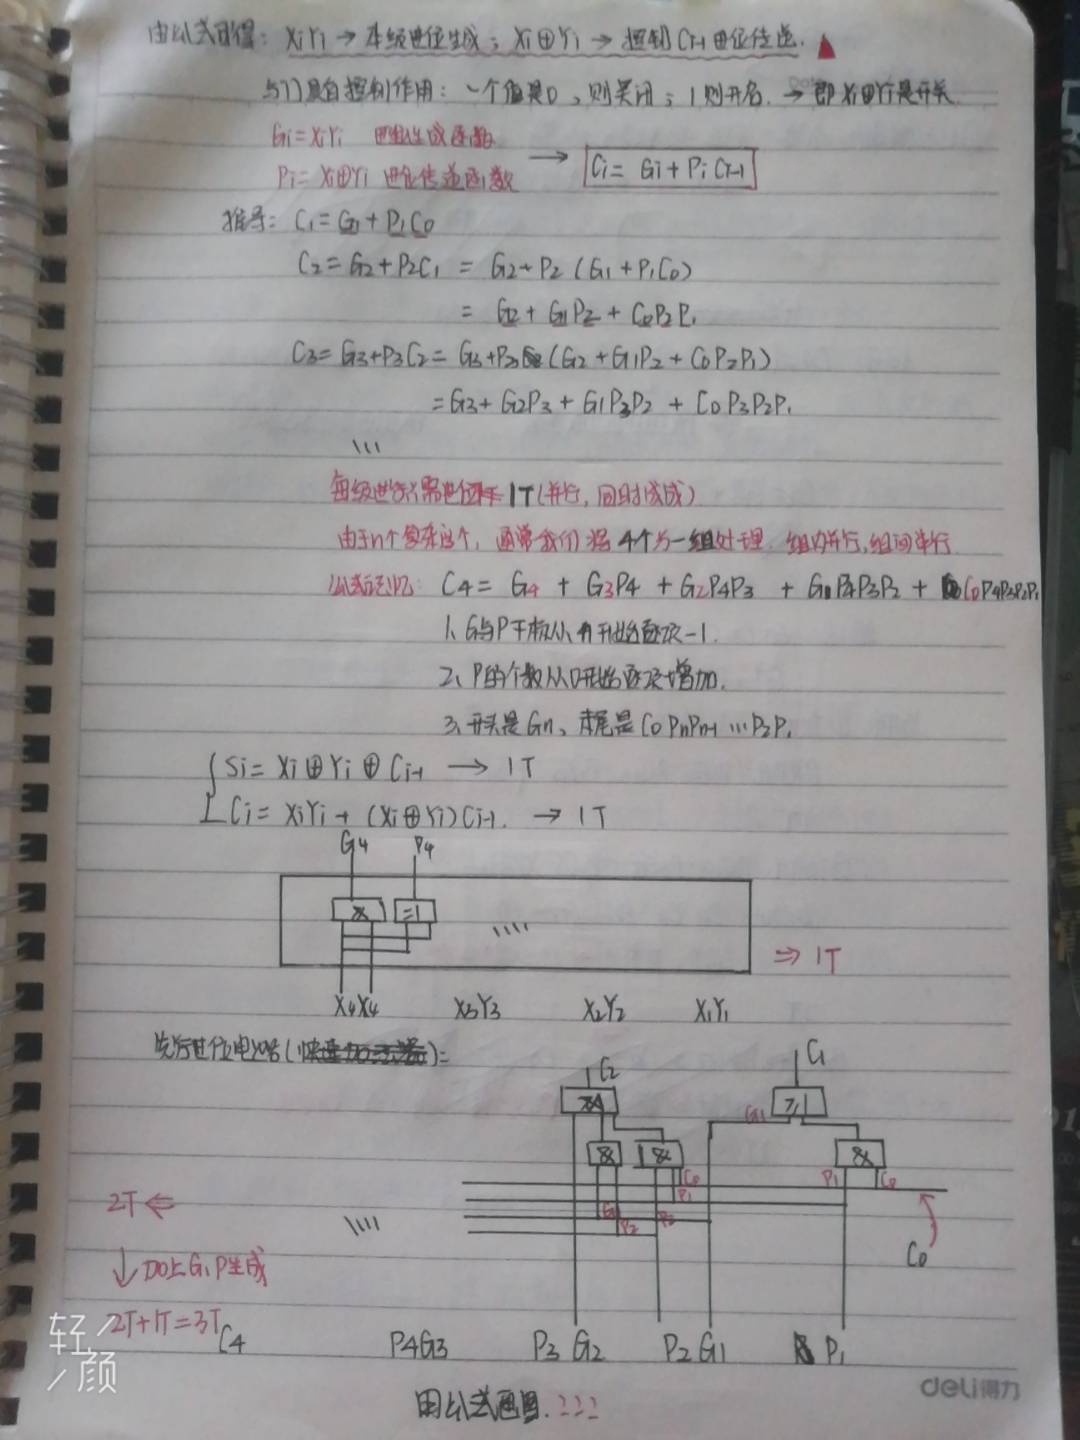 由公式可得: XiYi → 本级进位生成; Xi⊕Yi → 控制Ci-1进位传递.
与门具自控制作用: 一个值是0, 则关闭; 1则开启. → 即Xi⊕Yi是开关
Gi=XiYi 进位生成函数
Pi=Xi⊕Yi 进位传递函数 → Ci= Gi+PiCi-1
推导: C1=G1+P1C0
C2=G2+P2C1 = G2+P2(G1+P1C0)
= G2+G1P2+C0P2P1
C3=G3+P3C2=G3+P3(G2+G1P2+C0P2P1)
=G3+G2P3+G1P3P2+C0P3P2P1
1T(并行, 同时生成)
由于n个复杂, 通常我们将4个为一组处理. 组内并行,组间串行
公式记忆: C4= G4 + G3P4 + G2P4P3 + G1P4P3P2 + C0P4P3P2P1
1、G与P下标从n开始逐次-1.
2、P的个数从0开始逐次增加.
3、开头是Gn、末尾是C0PnPn-1…P2P1
Si= Xi⊕Yi⊕Ci-1 → 1T
Ci= XiYi+(Xi⊕Yi)Ci-1. → 1T
G4 P4
& =1
⇒ 1T
X4X4 X3Y3 X2Y2 X1Y1
先行进位电路(快速加法器):
C2 C1
≥1 G1 ≥1
& & &
C0 P1 C0
P1
2T ⇐ G1 P2 P2
C0
↓ 加上G,P生成
2T+1T=3T
C4 P4G3 P3 G2 P2 G1 P1
用公式画图.
轻颜
deli得力